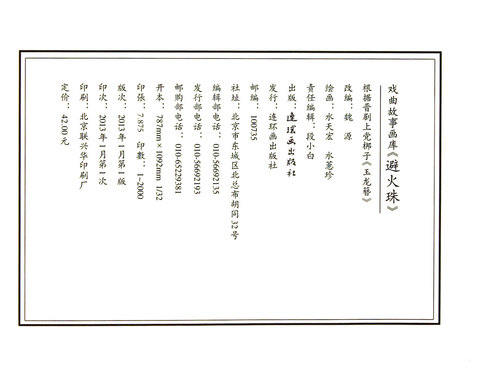 戏曲故事画库《避火珠》
根据晋剧上党梆子《玉龙簪》
改编：魏 源
绘画：水天宏 水茗珍
责任编辑：段小白
出版：连环画出版社
发行：连环画出版社
邮编：100735
社址：北京市东城区北总布胡同32号
编辑部电话：010-56692135
发行部电话：010-56692193
邮购部电话：010-65229381
开本：787mm×1092mm 1/32
印张：7.875 印数：1~2000
版次：2013年1月第一版
印次：2013年1月第一次
印刷：北京联兴华印刷厂
定价：42.00元